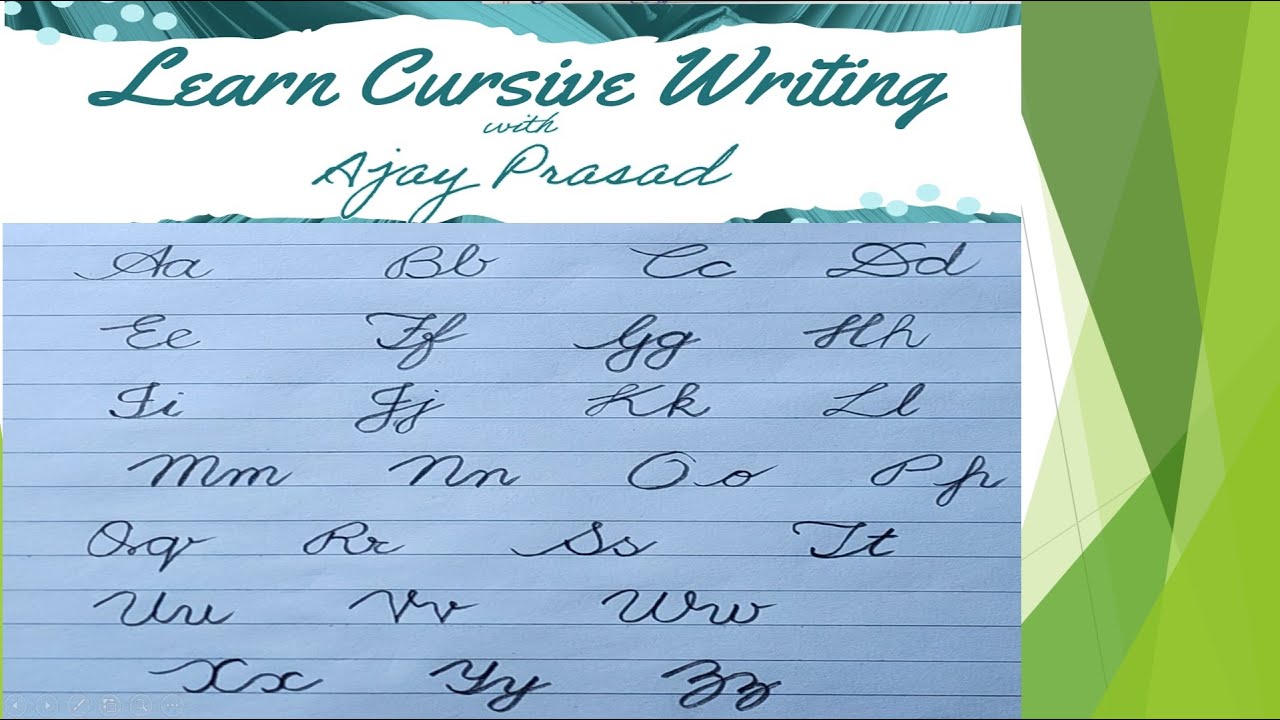 Learn Cursive Writing
with
Ajay Prasad
Aa Bb Cc Dd
Ee Ff Gg Hh
Ii Jj Kk Ll
Mm Nn Oo Pp
Qq Rr Ss Tt
Uu Vv Ww
Xx Yy Zz